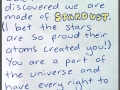 discovered we are
made of STARDUST.
(I bet the stars
are so proud their
atoms created you!)
You are a part
of the universe and
have every right to